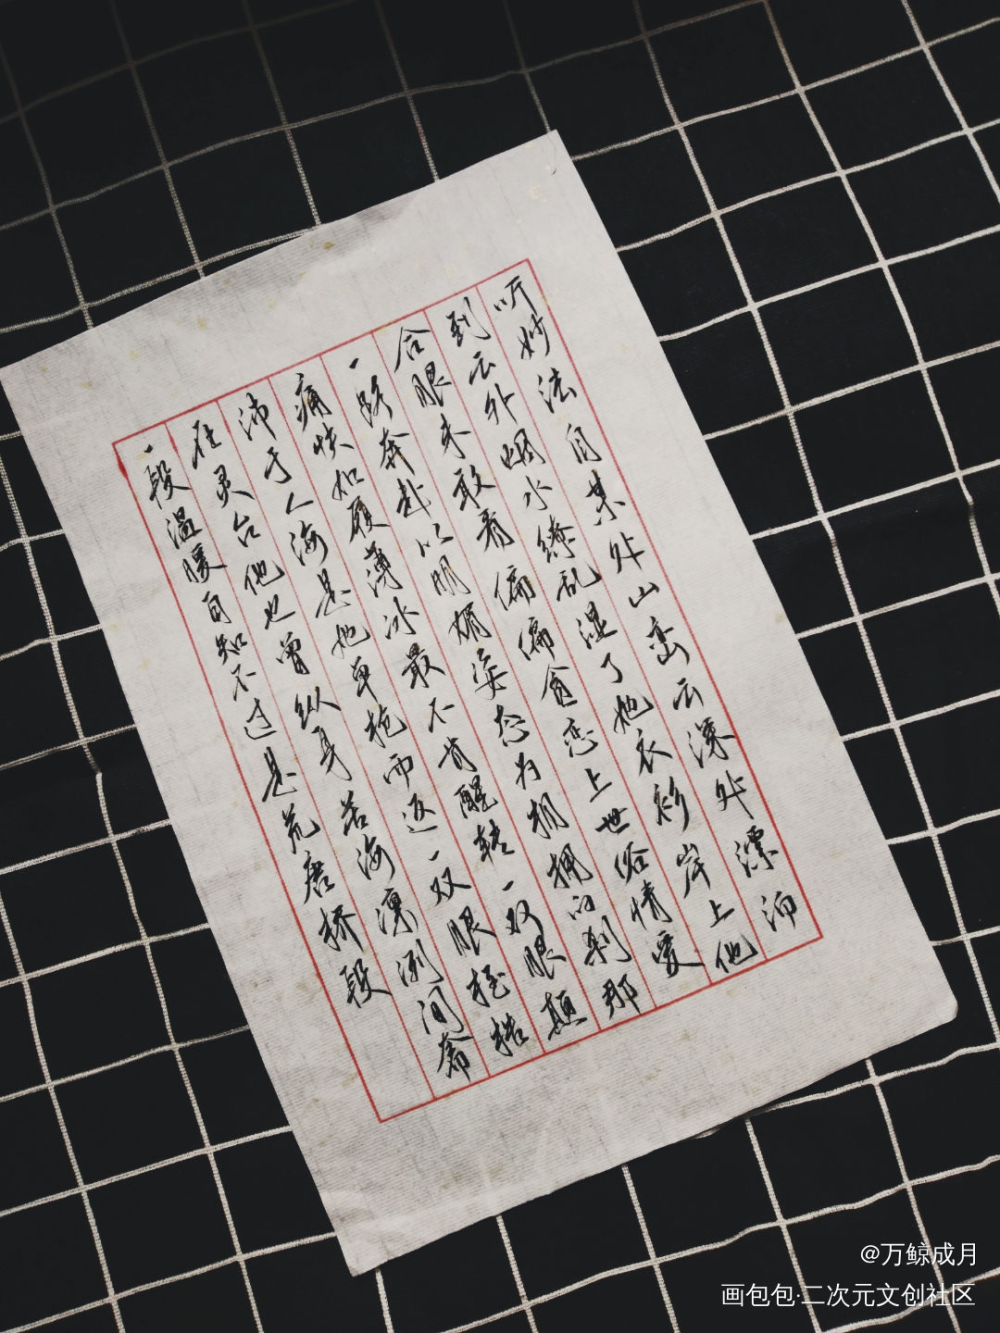 听妙法自某外山峦云深外漂泊
到云外烟水缭乱湿了她衣衫岸上他
合眼未敢看偏偏贪恋上世俗情爱
一跃奔赴以明媚姿态为相拥的刹那
痛快如履薄冰最不肯醒转一双眼颠
沛于人海是她单桅而返一双眼桎梏
在灵台他也曾纵身苦海凛冽间奔
一段温暖自知不过是荒唐桥段
@万鲸成月
画包包·二次元文创社区